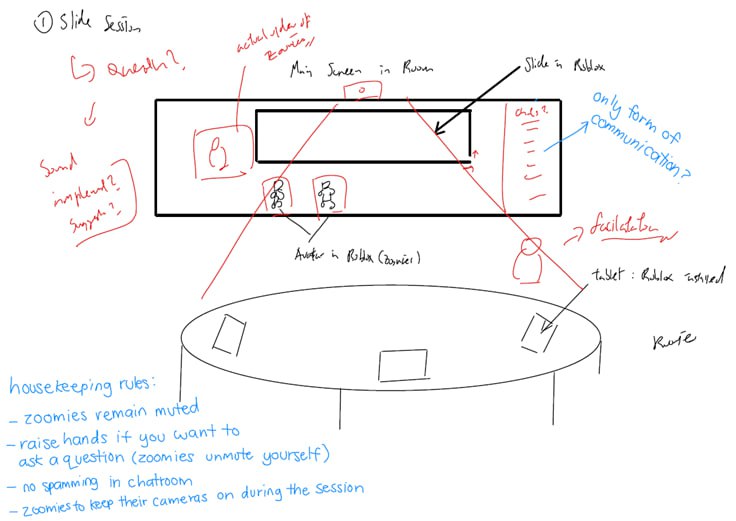 ① Slide Session
↳ Question?
actual video of zoomies
Main Screen in Room
Slide in Roblox
chats?
only form of
communication?
Sound
implement?
suggest?
Avatar in Roblox (zoomies)
facilitator
tablet: Roblox installed
housekeeping rules:
- zoomies remain muted
- raise hands if you want to
ask a question (zoomies unmute yourself)
- no spamming in chatroom
- zoomies to keep their cameras on during the session